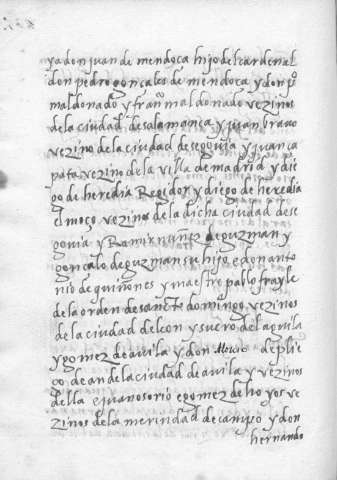 ya don juan de mendoça hijo del cardenal
don pedro gonçales de mendoça y don pº
maldonado y franº maldonado vezinos
de la ciudad de salamanca y juan bravo
vezino de la ciudad de segouia y juan ça
pata vezino de la villa de madrid y die
go de heredia Regidor y diego de heredia
el moço vezinos de la dicha ciudad de se
gouia y Ramir nuñez de guzman y
gonçalo de guzman su hijo e don anto
nio de quiñones y maestre pablo frayle
de la orden de sancto domingo vezinos
de la ciudad de leon y suero del aguila
y gomez de auila y don Alosio de plie
go dean de la ciudad de auila y vezinos
della e juan osorio e gomez de hoyos ve
zinos de la merindad de campo y don
hernando